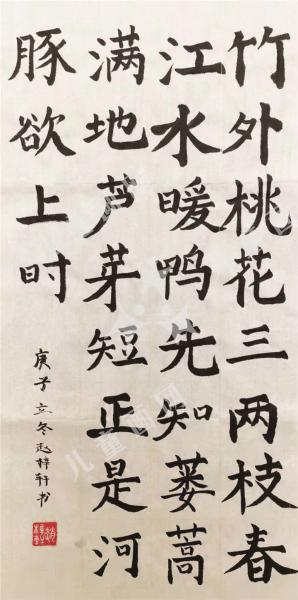 竹外桃花三两枝春
江水暖鸭先知蒌蒿
满地芦芽短正是河
豚欲上时
庚子立冬赵梓轩书
儿童画网